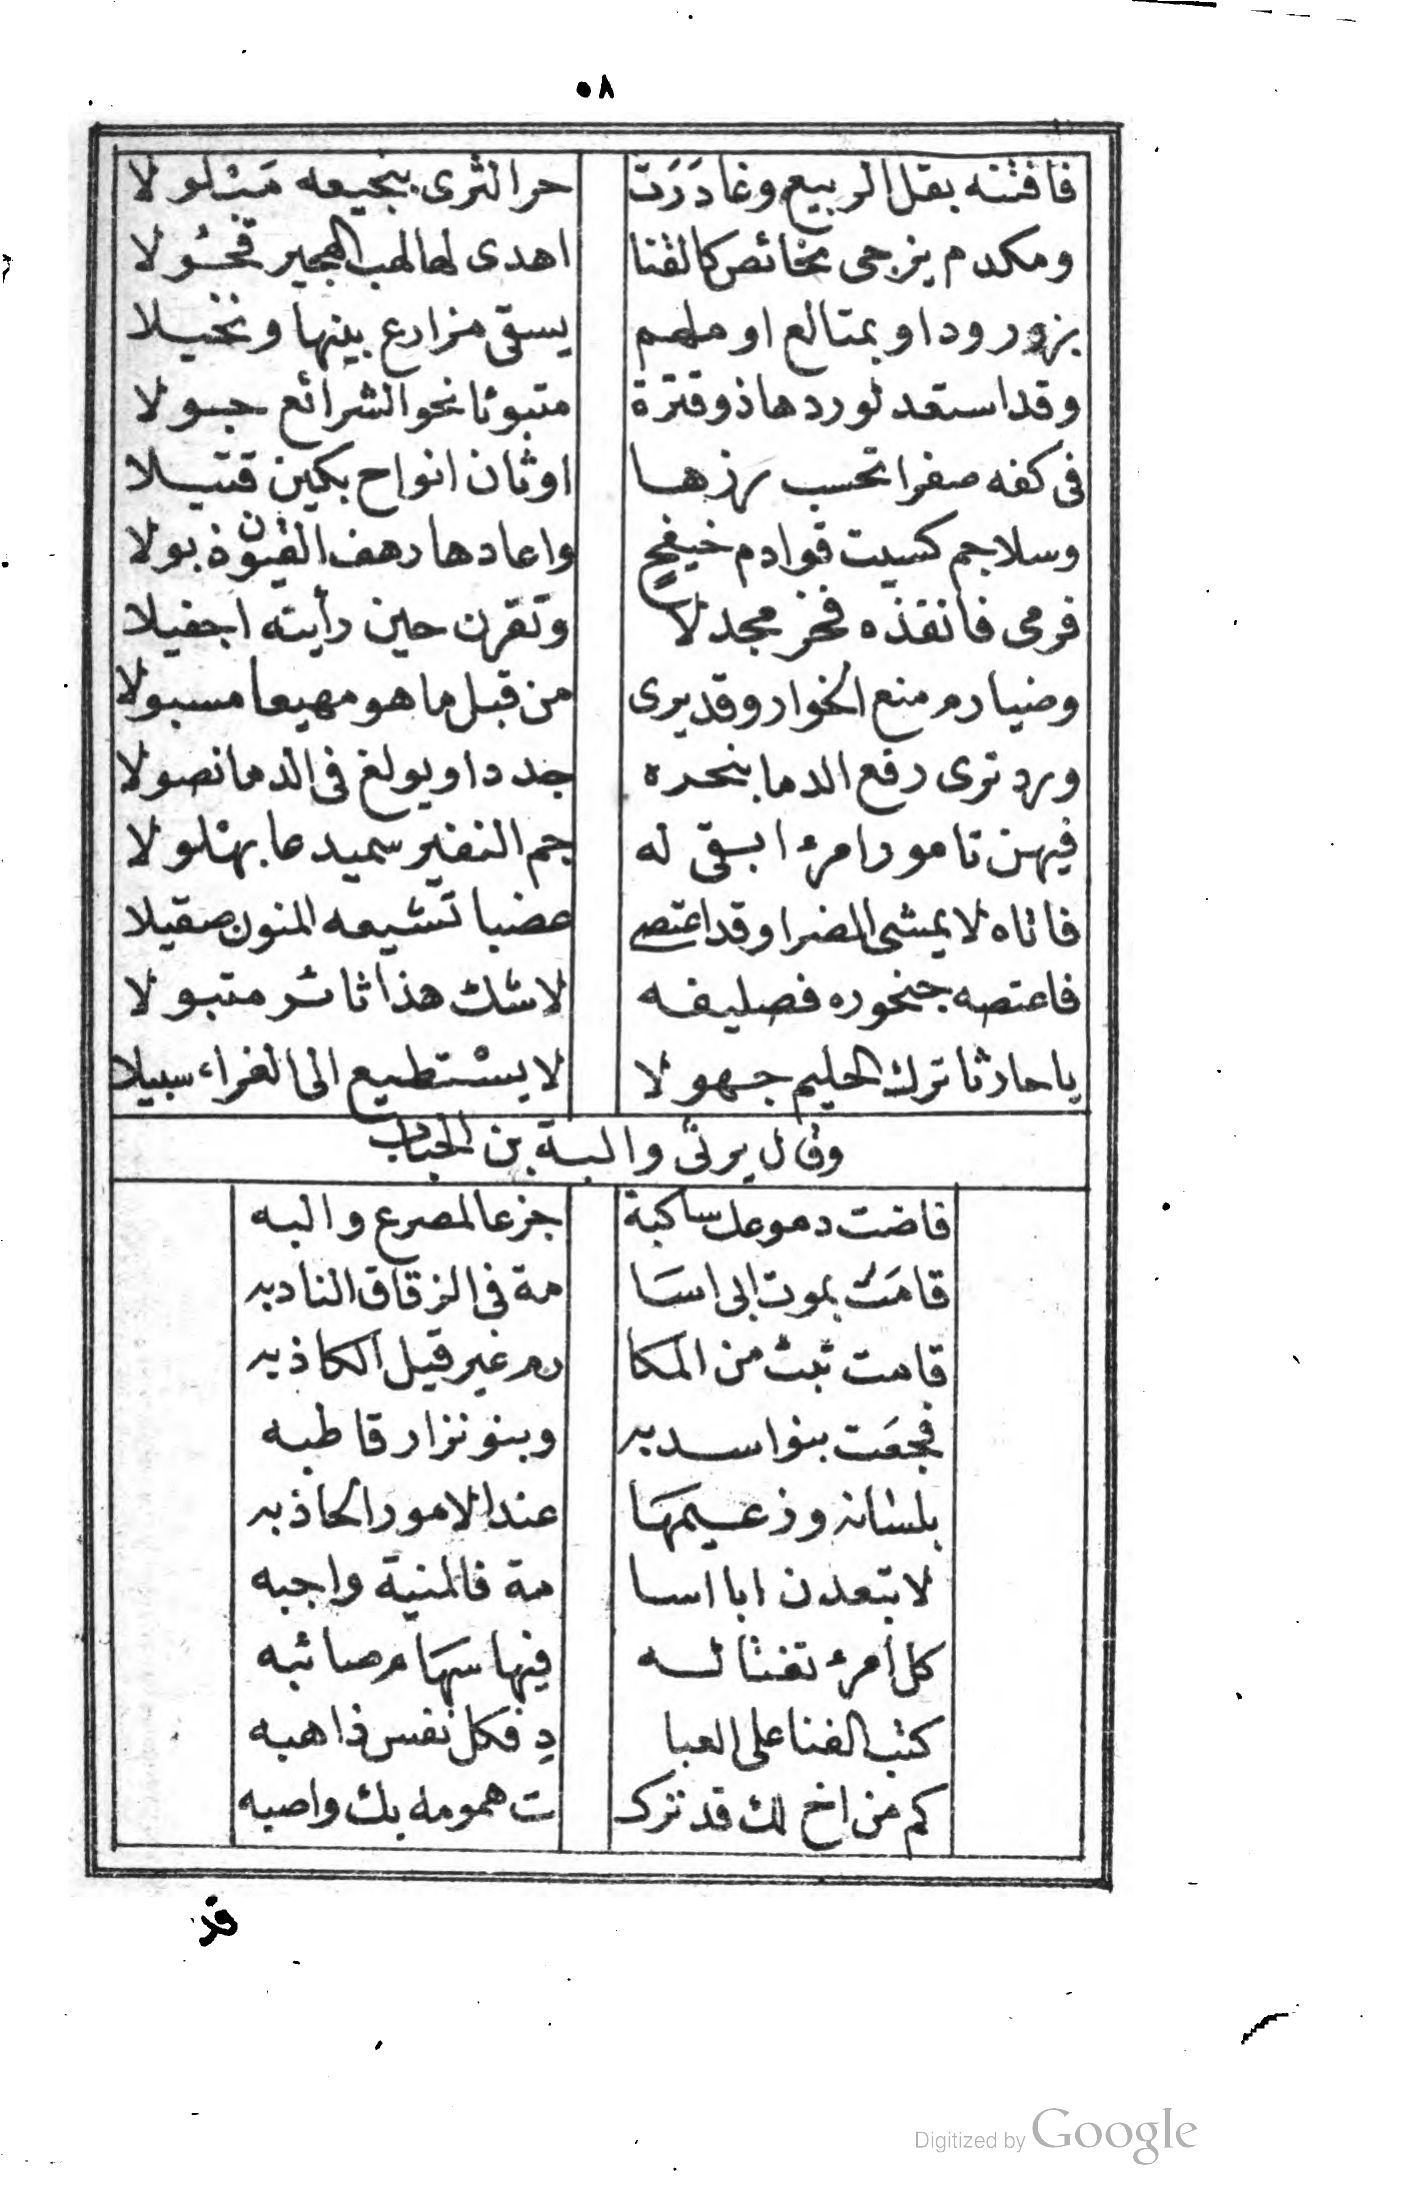 ٥٨
فافتنه بقل الربيع وغادَرَت حر الثرى بنجيعه مَثْلولا
ومكدم يزجى نحائص كالقنا اهدى لها لهب الهجير قحولا
بزرود او بمتالع او ملهم يسقى مزارع بينها ونخيلا
وقد استعد لوردها ذو قترة متبوئا نحو الشرائع جولا
فى كفه صفرا تحسب رزها اوثان انواح بكين قتيلا
وسلاجم كسيت قوادم خيفج واعادها رهف القيون ذبولا
فرمى فانقذه فخر مجدلا وتقرن حين رأيته اجفيلا
وضبارم منع الخوار وقد يرى من قبل ما هو مهيعا مسبولا
ورد ترى رقع الدما بنحره جدد داو يولغ فى الدما نصولا
فيهن تامور امرء ابقى له جم النفير سميدعا بهلولا
فاتاه لا يمشى الضرا وقد اعتصى عضبا تشيعه المنون صقيلا
فاعتصه جنحوره فصليفه لاشك هذا ثائر متبولا
يا حارثا ترك الحليم جهولا لا يستطيع الى الغراء سبيلا
وقال يرثى والبة بن الحباب
فاضت دموعك ساكبة جزعا لمصرع والبه
قامَت بموت ابى اسَا مة فى الزقاق النادبه
قامت تبث من المكا رم غير قيل الكاذبه
فجعَت بنو اسد به وبنو نزار قاطبه
بلسانه وزعيمهَا عند الامور الحاذبه
لا تبعدن ابا اسا مة فالمنية واجبه
كل امرء تغتاله فيها سهَام صائبه
كتب الفنا على العبا دِ فكل نفس ذاهبه
كم من اخ لك قد تركـ ت همومه بك واصبه
قد
Digitized by Google